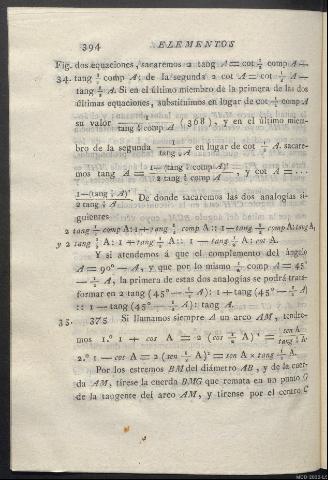 394 ELEMENTOS
Fig. dos equaciones, sacaremos 2 tang A = cot ½ comp A —
34. tang ½ comp A; de la segunda 2 cot A = cot ½ A —
tang ½ A. Si en el último miembro de la primera de las dos
últimas equaciones, substituimos en lugar de cot ½ comp A
su valor 1/tang ½ comp A (368), y en el último miem-
bro de la segunda 1/tang ½ A en lugar de cot ½ A, sacare-
mos tang A = 1—(tang ½ comp A)²/2 tang ½ comp A, y cot A = ...
1—(tang ½ A)²/2 tang ½ A. De donde sacaremos las dos analogías si-
guientes
2 tang ½ comp A: 1 + tang ½ comp A :: 1 — tang ½ comp A: tang A,
y 2 tang ½ A: 1 + tang ½ A :: 1 — tang ½ A: cot A.
Y si atendemos á que el complemento del ángulo
A = 90° — A, y que por lo mismo ½ comp A = 45°
— ½ A, la primera de estas dos analogías se podrá trans-
formar en 2 tang (45° — ½ A): 1 + tang (45° — ½ A)
:: 1 — tang (45° — ½ A): tang A.
35. 375 Si llamamos siempre A un arco AM, tendre-
mos 1.° 1 + cos A = 2 (cos ½ A)² = sen A/tang ½ A
2.° 1 — cos A = 2 (sen ½ A)² = sen A × tang ½ A.
Por los estremos BM del diámetro AB, y de la cuer-
da AM, tírese la cuerda BMG que remata en un punto G
de la taugente del arco AM, y tírense por el centro C